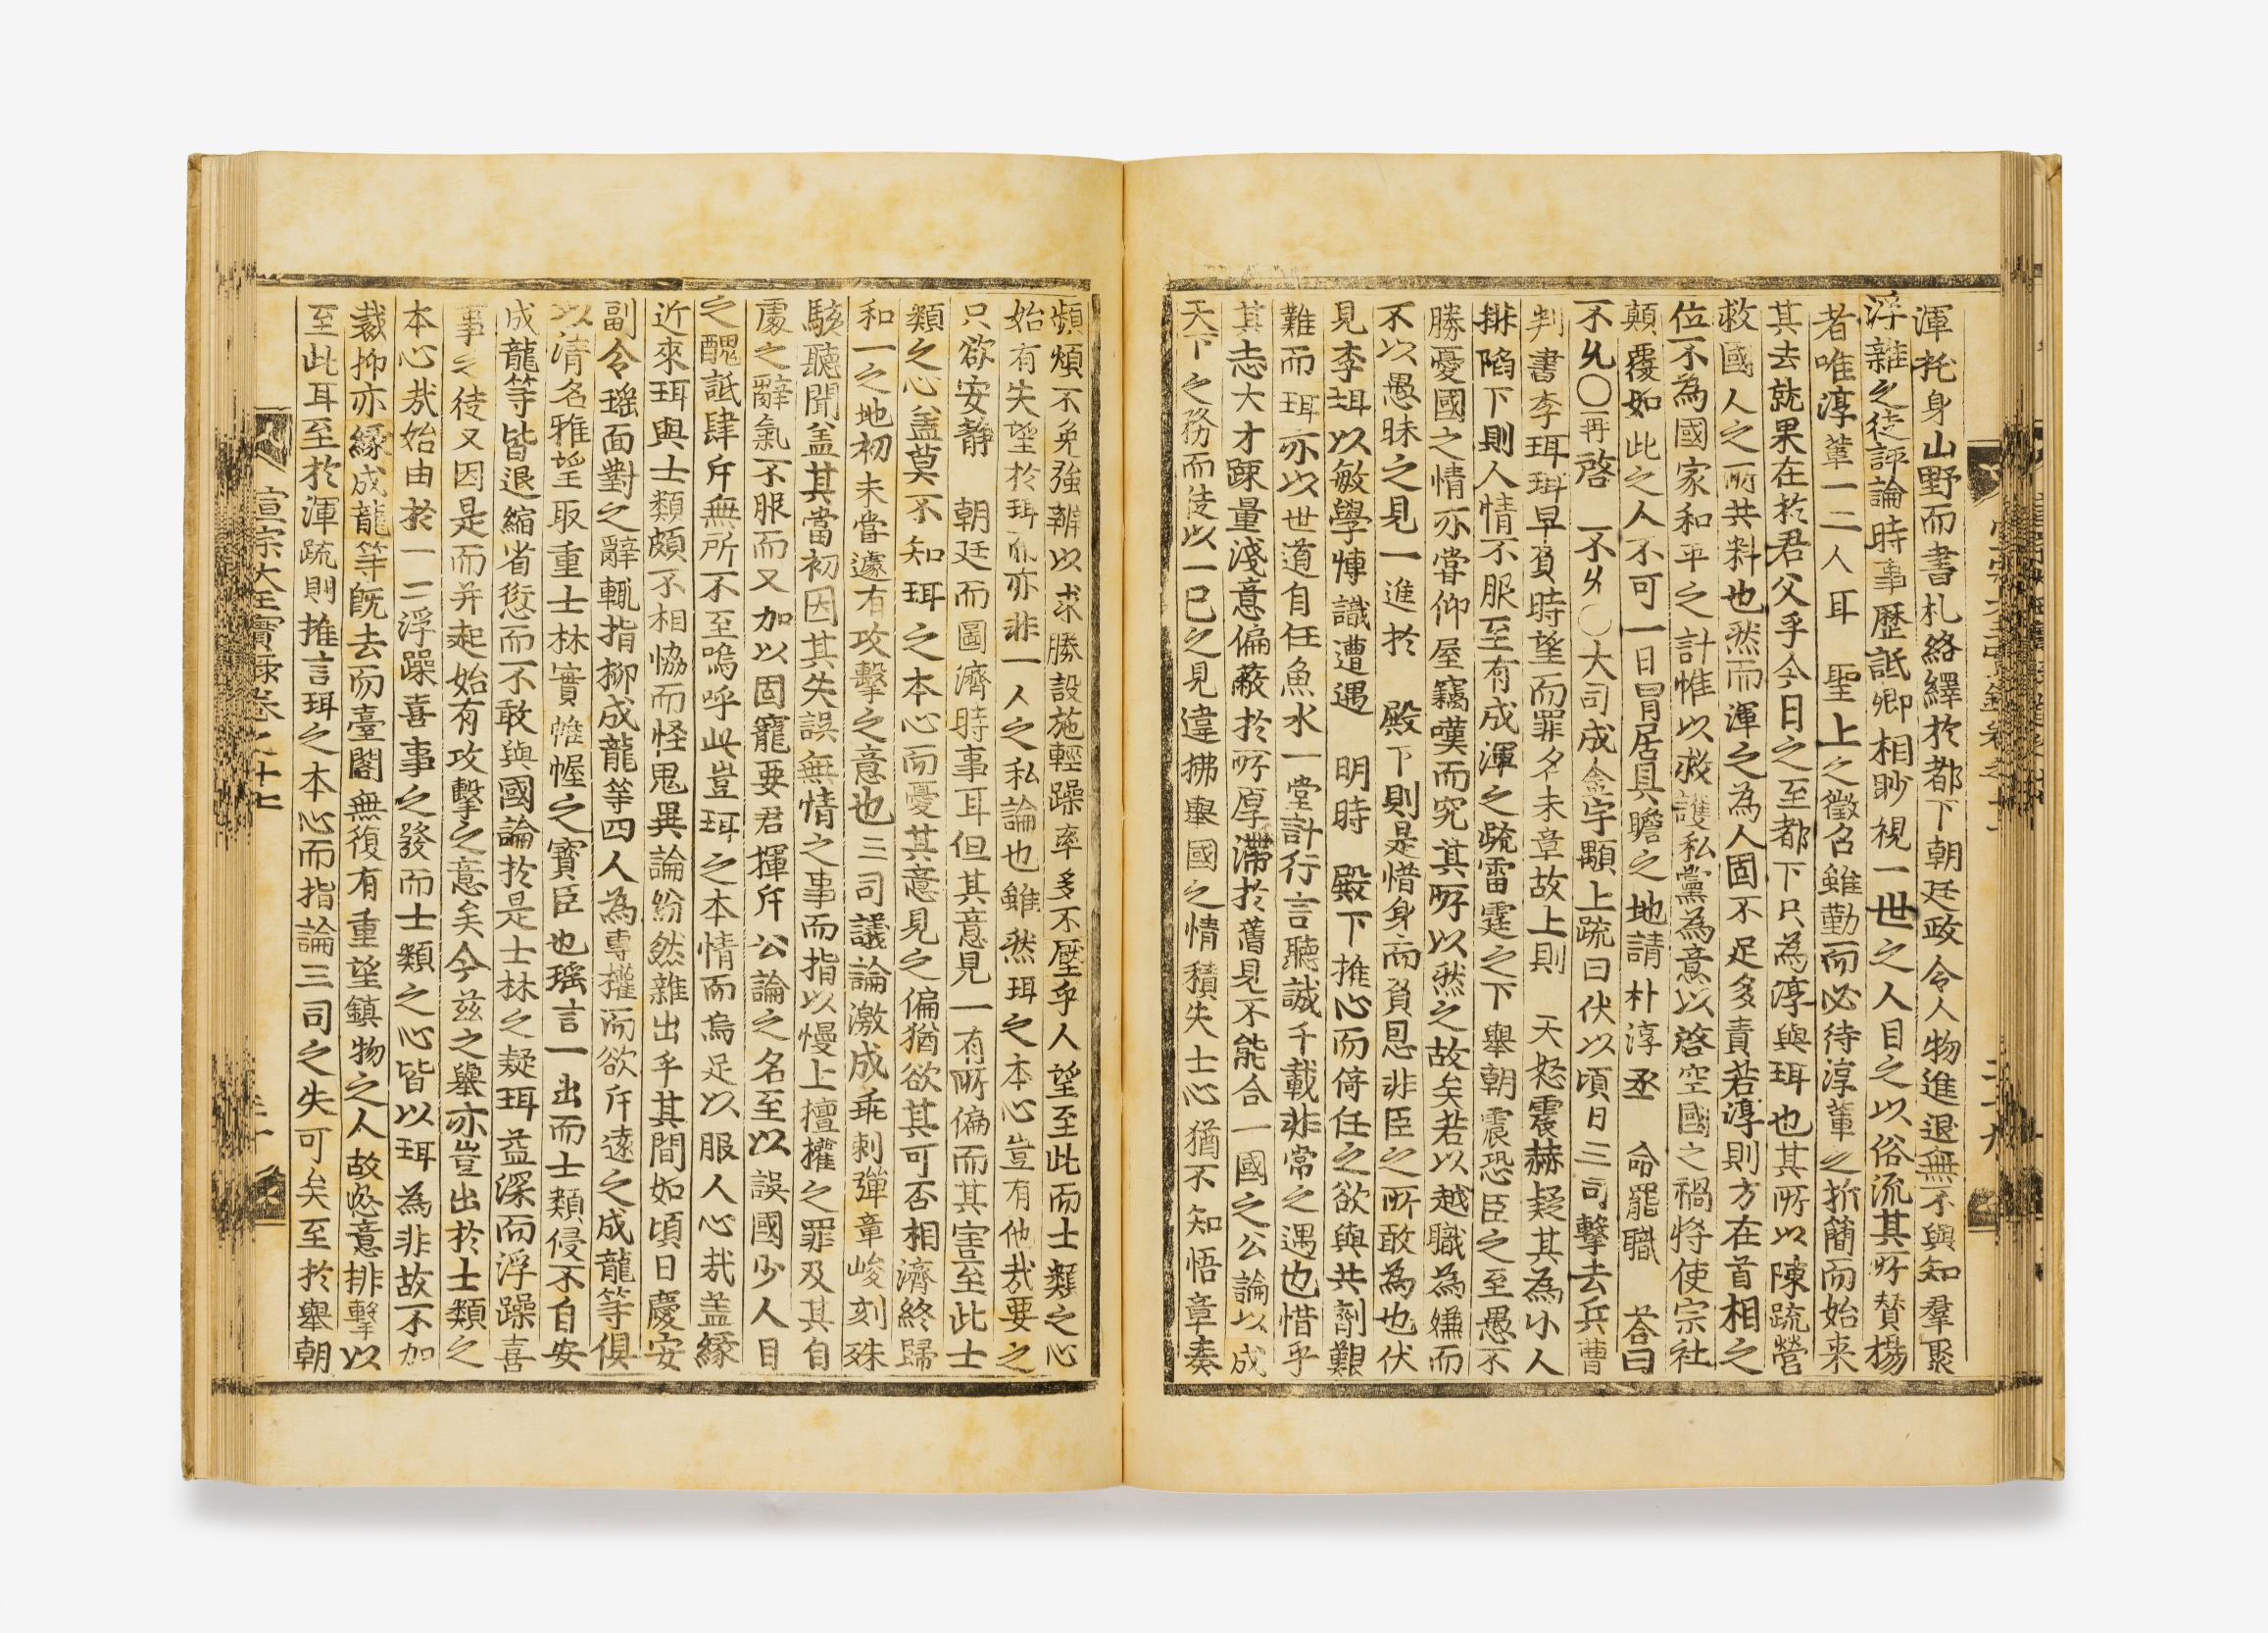 渾托身山野而書札絡繹於都下朝廷政令人物進退無不與知羣聚
浮雜之徒評論時事歷詆卿相眇視一世之人目之以俗流其所賛揚
者唯淳輩一二人耳 聖上之徵召雖勤而必待淳輩之折簡而始来
其去就果在於君父乎今日之至都下只為淳與珥也其所以陳疏營
救國人之所共料也然而渾之為人固不足多責若淳則方在首相之
位不為國家和平之計惟以救護私黨為意以啓空國之禍將使宗社
顛覆如此之人不可一日冒居具瞻之地請朴淳丞 命罷職 答曰
不允○再啓 不允○大司成金宇顒上疏曰伏以頃日三司擊去兵曹
判書李珥珥早負時望而罪名未章故上則 天怒震赫疑其為小人
排陷下則人情不服至有成渾之疏雷霆之下舉朝震恐臣之至愚不
勝憂國之情亦嘗仰屋竊嘆而究其所以然之故矣若以越職為嫌而
不以愚昧之見一進於 殿下則是惜身而負恩非臣之所敢為也伏
見李珥以敏學博識遭遇 明時 殿下推心而倚任之欲與共劑艱
難而珥亦以世道自任魚水一堂計行言聽誠千載非常之遇也惜乎
其志大才踈量淺意偏蔽於所厚滯於舊見不能合一國之公論以成
天下之務而徒以一己之見違拂舉國之情積失士心猶不知悟章奏
頻煩不免強辨以求勝設施輕躁率多不壓乎人望至此而士類之心
始有失望於珥而亦非一人之私論也雖然珥之本心豈有他哉要之
只欲安靜 朝廷而圖濟時事耳但其意見一有所偏而其害至此士
類之心盖莫不知珥之本心而憂其意見之偏猶欲其可否相濟終歸
和一之地初未嘗遽有攻擊之意也三司議論激成乖剌彈章峻刻殊
駭聽聞盖其當初因其失誤無情之事而指以慢上擅權之罪及其自
處之辭氣不服而又加以固寵要君揮斥公論之名至以誤國少人目
之醜詆肆斥無所不至嗚呼此豈珥之本情而烏足以服人心哉盖緣
近來珥與士類頗不相協而怪鬼異論紛然雜出乎其間如頃日慶安
副令瑤面對之辭輒指柳成龍等四人為專權而欲斥遠之成龍等俱
以清名雅望取重士林實帷幄之寶臣也瑤言一出而士類侵不自安
成龍等皆退縮省愆而不敢與國論於是士林之疑珥益深而浮躁喜
事之徒又因是而并起始有攻擊之意矣今茲之舉亦豈出於士類之
本心哉始由於一二浮躁喜事之發而士類之心皆以珥為非故不加
裁抑亦緣成龍等旣去而臺閣無復有重望鎮物之人故恣意排擊以
至此耳至於渾疏則推言珥之本心而指論三司之失可矣至於舉朝
宣宗大王實錄卷之十七